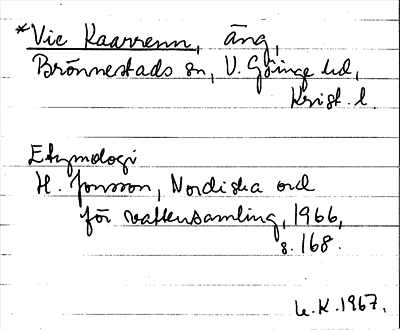 *Vie Kaarrenn, äng,
Brönnestads sn, V. Göinge hd,
Krist. l.
Etymologi
H. Jonsson, Nordiska ord
för vattensamling, 1966,
s. 168.
U.K. 1967.